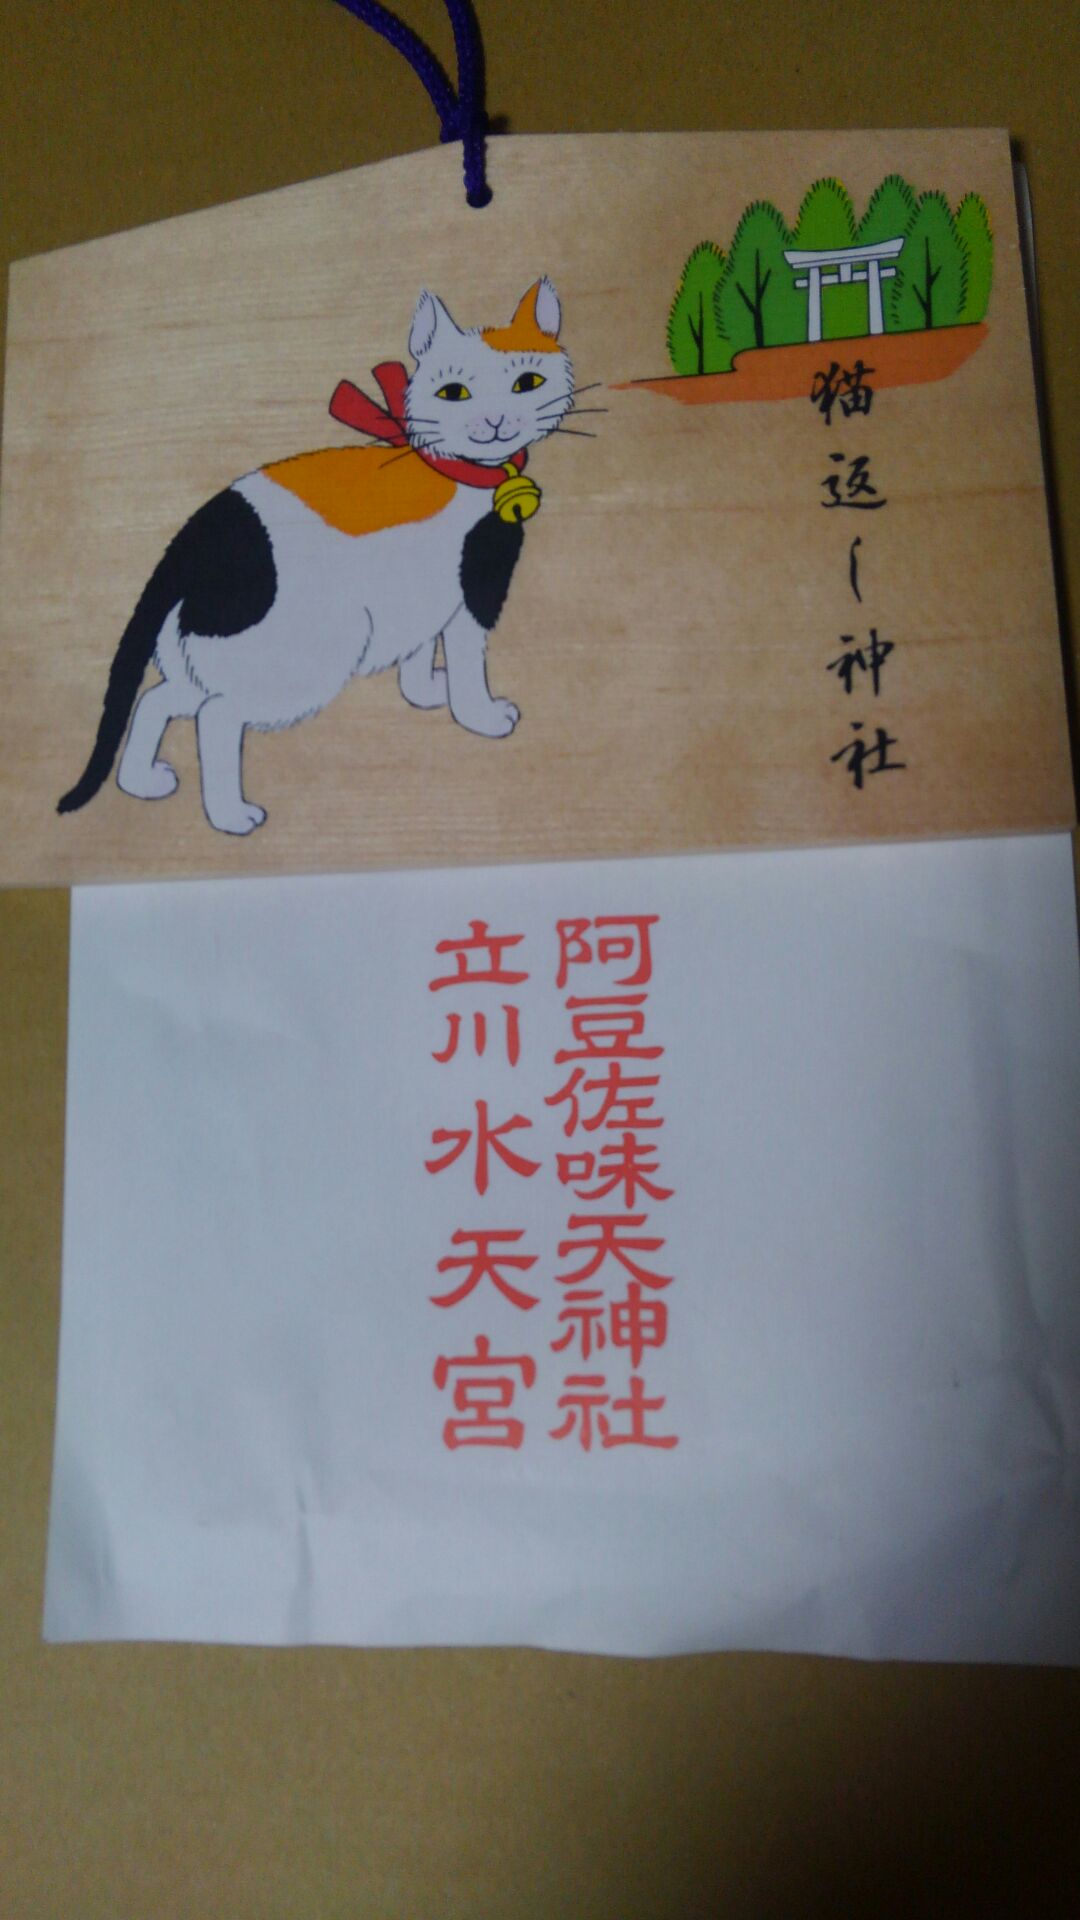 猫返し神社
阿豆佐味天神社
立川水天宮